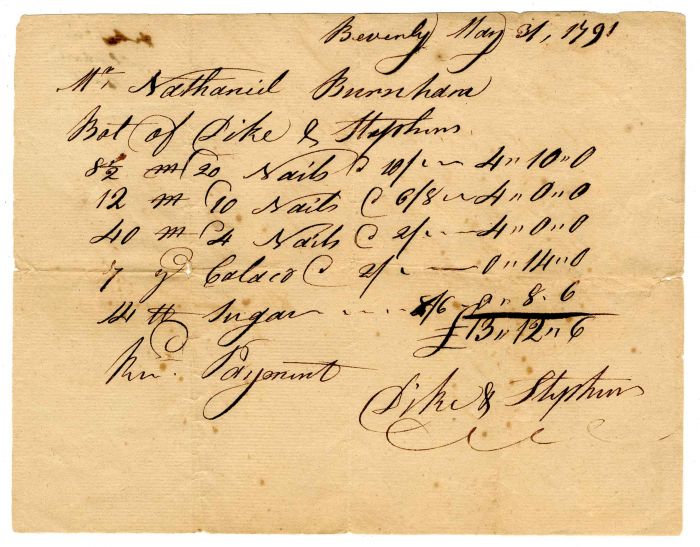 Beverly May 31, 1791
Mr Nathaniel Burnham
Bot of Dike & Stephens
8½ m 20 Nails @ 10/ 4" 10" 0
12 m 10 Nails @ 6/8 4" 0" 0
40 m 4 Nails @ 2/ 4" 0" 0
7 yd Calaco @ 2/ 0" 14" 0
14 tt Sugar 8/6 0" 8" 6
£13" 12" 6
Recd. Payment
Dike & Stephens